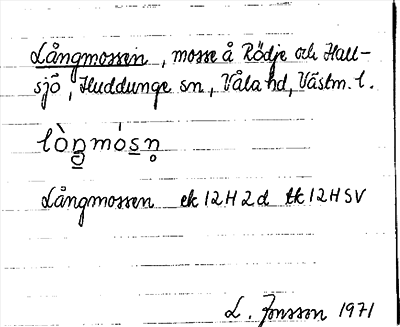 Långmossen, mosse å Rödje och Hall-
sjö, Huddunge sn, Våla hd, Västm. l.
Långmossen ek 12H2d tk 12HSV
L. Jonsson 1971